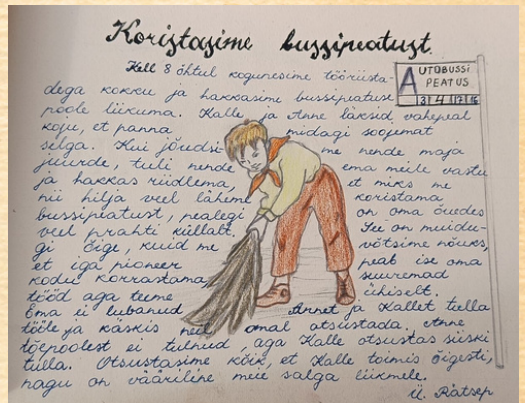 Koristasime bussipeatust.
AUTOBUSSI
PEATUS
3 4 17 16
Kell 8 õhtul kogunesime tööriista-
dega kokku ja hakkasime bussipeatuse
poole liikuma. Kalle ja Anne läksid vahepeal
koju, et panna midagi soojemat
selga. Kui jõudsi- me nende maja
juurde, tuli nende ema meile vastu
ja hakkas riidlema, et miks me
nii hilja veel läheme koristama
bussipeatust, pealegi on oma õuedes
veel prahti küllalt. See on muidu-
gi õige, kuid me võtsime nõuks,
et iga pioneer peab ise oma
kodu korrastama, suuremad
tööd aga teeme ühiselt.
Ema ei lubanud Annet ja Kallet tulla
tööle ja käskis neil omal otsustada. Anne
tõepoolest ei tulnud, aga Kalle otsustas siiski
tulla. Otsustasime kõik, et Kalle toimis õigesti,
nagu on vääriline meie salga liikmele.
Ü. Rätsep